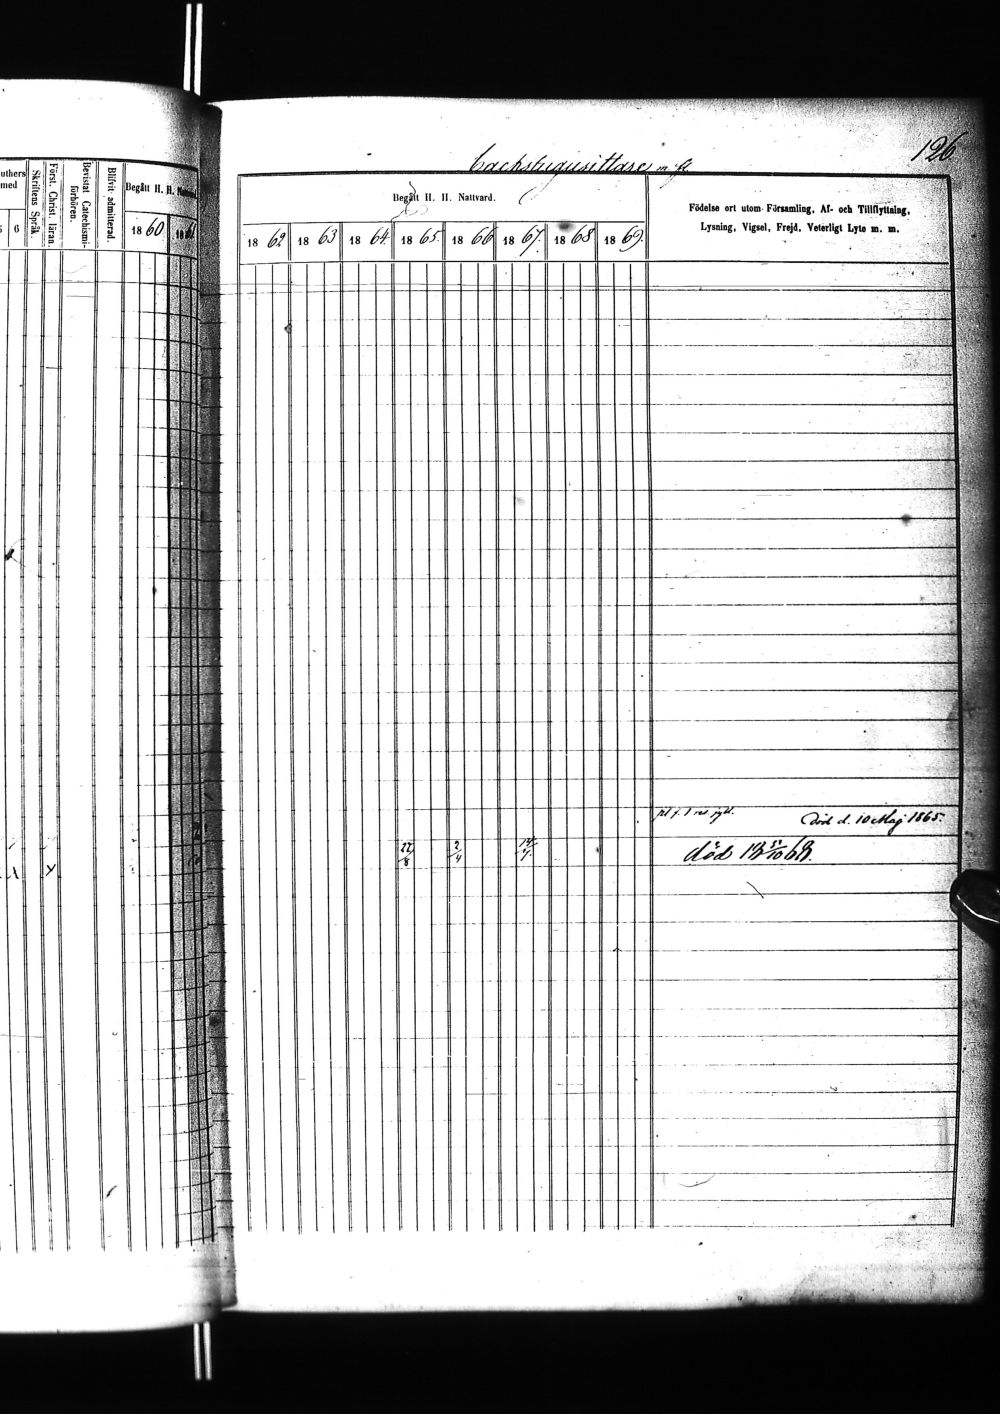 126
Backstugusittare m. fl.
uthers
med
5 6
Skriftens Språk.
Först. Christ. läran.
Bevistat Catechismi-
förhören.
Blifvit admitterad.
Begått H. H. Nattvard.
1860 1861
Begått H. H. Nattvard.
1862 1863 1864 1865. 1866 1867. 1868 1869.
Födelse ort utom Församling, Af- och Tillflyttning,
Lysning, Vigsel, Frejd, Veterligt Lyte m. m.
Död d. 10 Maj 1865.
22/8 2/4 14/7.
död